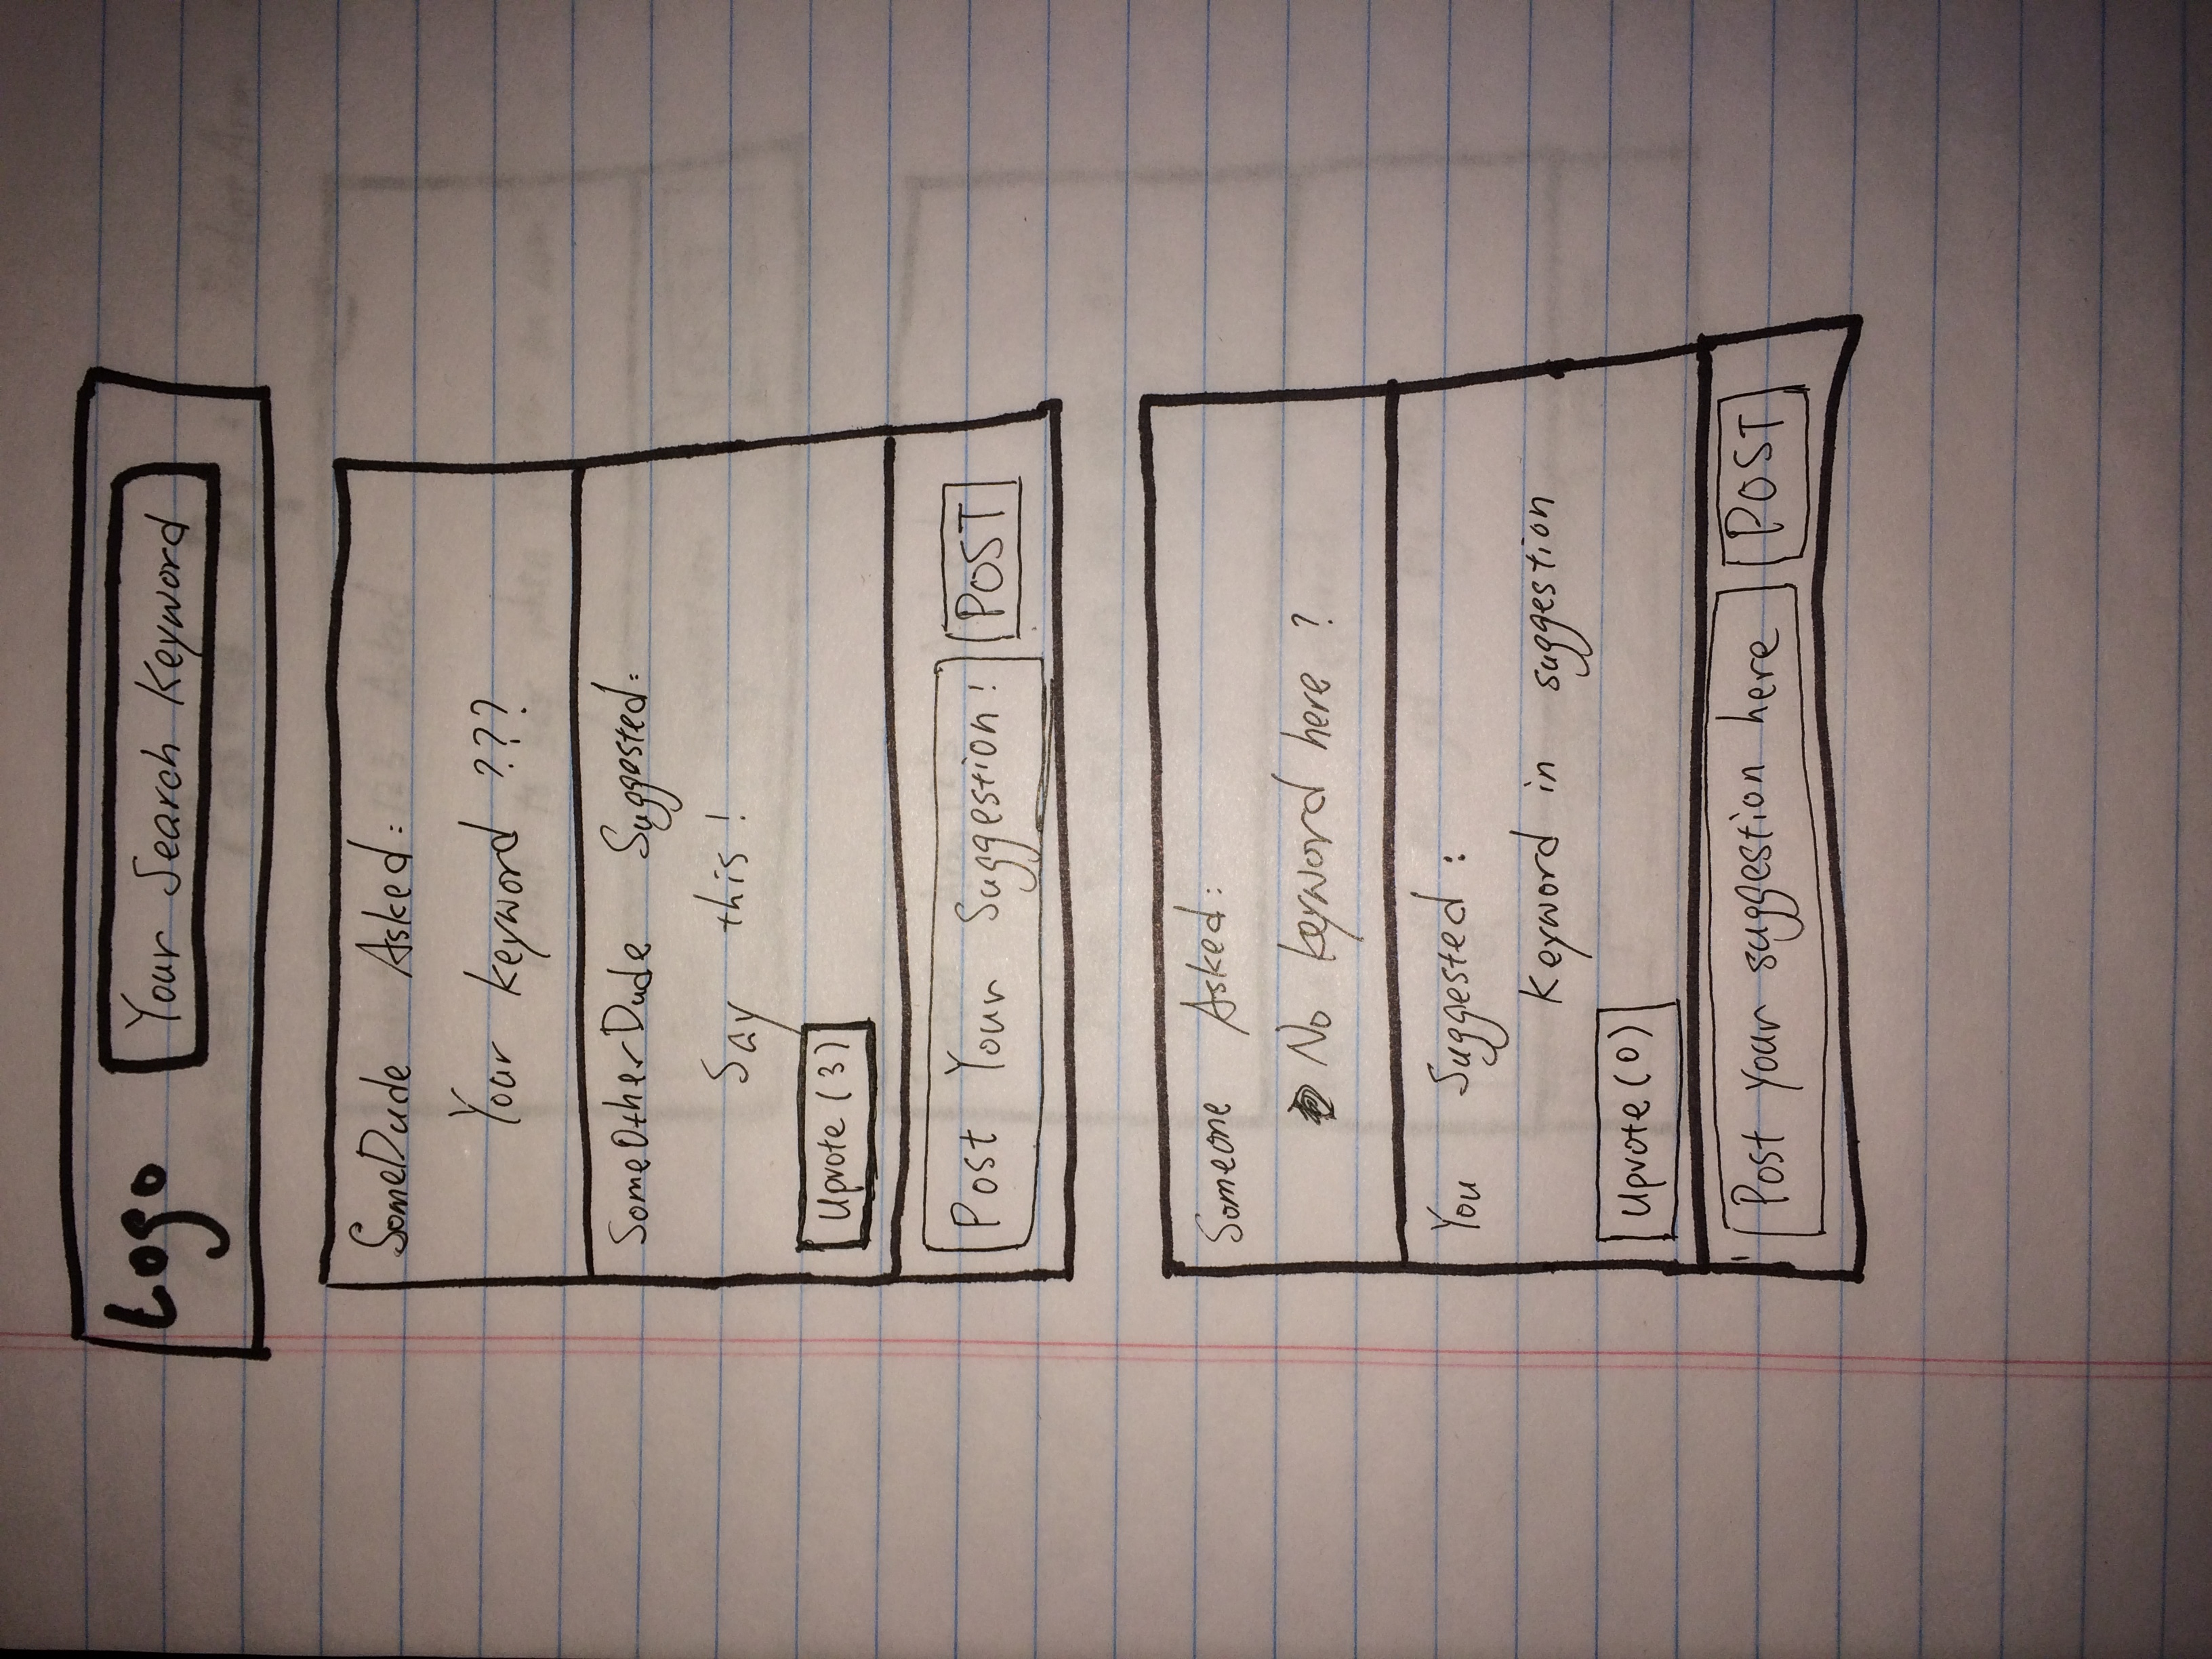 Logo
Your Search Keyword
SomeDude Asked:
Your keyword ???
SomeOtherDude Suggested:
Say this!
Upvote (3)
Post Your Suggestion! POST
Someone Asked:
No keyword here ?
You Suggested:
Keyword in suggestion
Upvote (0)
Post your suggestion here POST